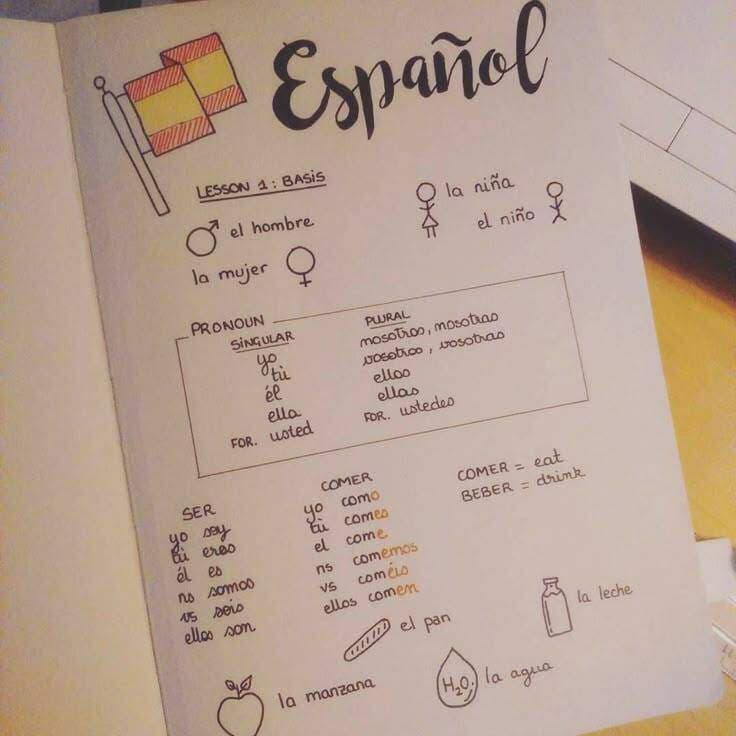 Español
LESSON 1: BASIS
el hombre
la mujer
la niña
el niño
PRONOUN
SINGULAR
yo
tù
él
ella
FOR. usted
PLURAL
nosotros, nosotras
vosotros, vosotras
ellos
ellas
FOR. ustedes
SER
yo soy
tù eres
él es
ns somos
vs sois
ellos son
COMER
yo como
tù comes
el come
ns comemos
vs coméis
ellos comen
COMER = eat
BEBER = drink
el pan
la leche
la manzana
H₂O
la agua